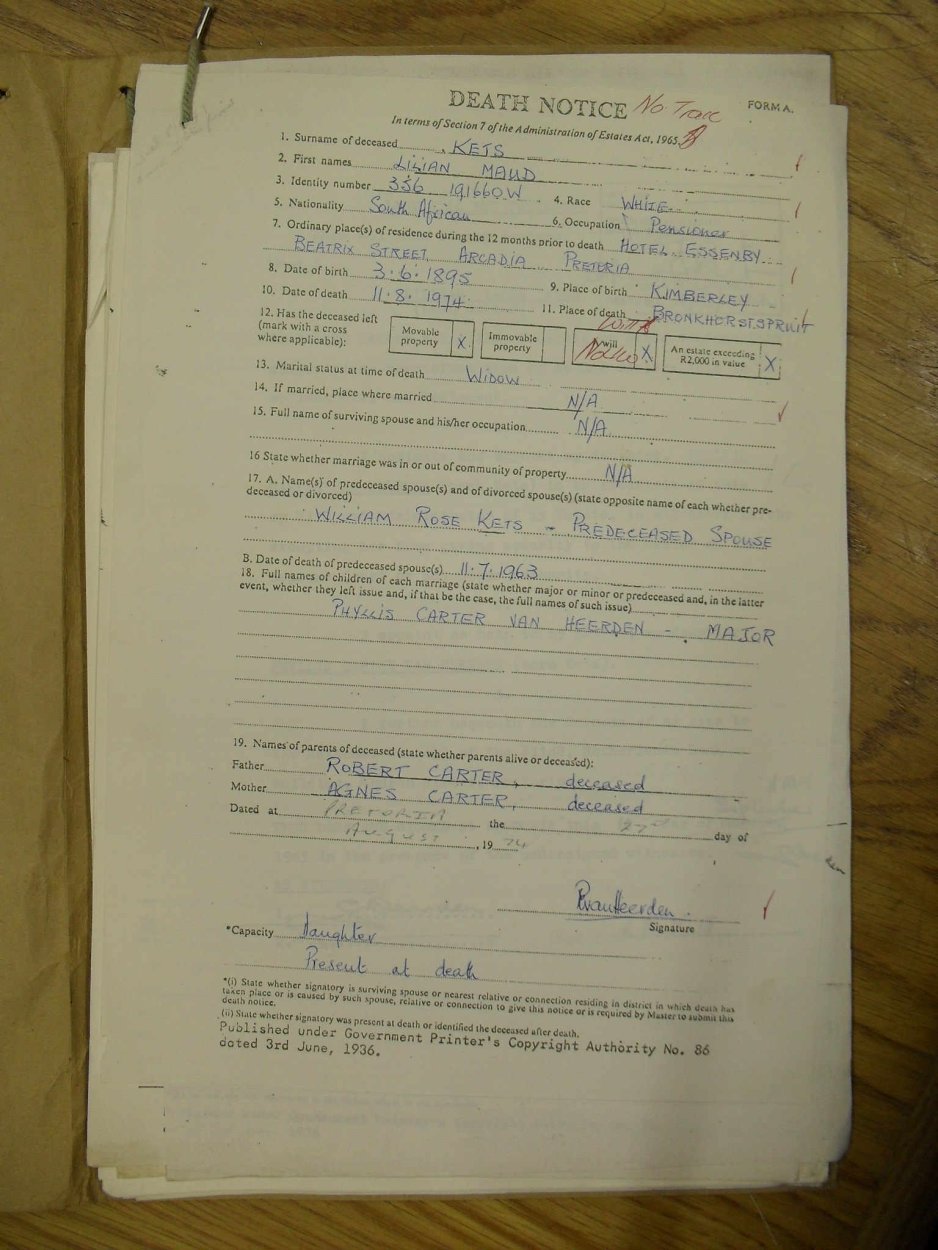 DEATH NOTICE No Trace FORM A.
In terms of Section 7 of the Administration of Estates Act, 1965.
1. Surname of deceased KETS
2. First names LILIAN MAUD
3. Identity number 336 191660W 4. Race WHITE
5. Nationality South African 6. Occupation Pensioner
7. Ordinary place(s) of residence during the 12 months prior to death HOTEL ESSENBY
BEATRIX STREET ARCADIA PRETORIA
8. Date of birth 3.6.1895 9. Place of birth KIMBERLEY
10. Date of death 11.8.1974 11. Place of death BRONKHORSTSPRUIT
12. Has the deceased left
(mark with a cross
where applicable):
Movable
property X
Immovable
property
Will X
An estate exceeding
R2,000 in value X
13. Marital status at time of death WIDOW
14. If married, place where married N/A
15. Full name of surviving spouse and his/her occupation N/A
16 State whether marriage was in or out of community of property N/A
17. A. Name(s) of predeceased spouse(s) and of divorced spouse(s) (state opposite name of each whether pre-
deceased or divorced)
WILLIAM ROSE KETS - PREDECEASED SPOUSE
B. Date of death of predeceased spouse(s) 11.7.1963
18. Full names of children of each marriage (state whether major or minor or predeceased and, in the latter
event, whether they left issue and, if that be the case, the full names of such issue)
PHYLLIS CARTER VAN HEERDEN - MAJOR
19. Names of parents of deceased (state whether parents alive or deceased):
Father ROBERT CARTER, deceased
Mother AGNES CARTER, deceased
Dated at PRETORIA the 27th day of
August, 19 74
PvanHeerden.
Signature
*Capacity Daughter
Present at death
*(i) State whether signatory is surviving spouse or nearest relative or connection residing in district in which death has
taken place or is caused by such spouse, relative or connection to give this notice or is required by Master to submit this
death notice.
(ii) State whether signatory was present at death or identified the deceased after death.
Published under Government Printer's Copyright Authority No. 86
dated 3rd June, 1936.